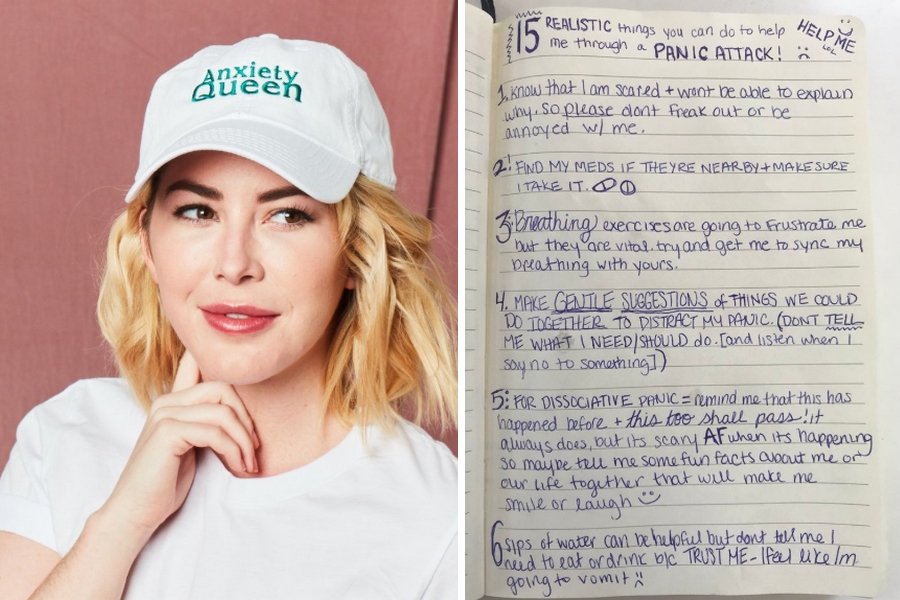 Anxiety
Queen
15 REALISTIC things you can do to help
me through a PANIC ATTACK!
HELP ME
LOL
1. Know that I am scared + wont be able to explain
why, so please dont freak out or be
annoyed w/ me.
2. FIND MY MEDS IF THEYRE NEARBY + MAKE SURE
I TAKE IT.
3. Breathing exercises are going to frustrate me
but they are vital. try and get me to sync my
breathing with yours.
4. MAKE GENTLE SUGGESTIONS of THINGS WE COULD
DO TOGETHER TO DISTRACT MY PANIC. (DONT TELL
ME WHAT I NEED/SHOULD do. [and listen when I
say no to something])
5: FOR DISSOCIATIVE PANIC = remind me that this has
happened before + this too shall pass! it
always does, but its scary AF when its happening
so maybe tell me some fun facts about me or
our life together that will make me
smile or laugh
6 sips of water can be helpful but dont tell me I
need to eat or drink b/c TRUST ME - I feel like Im
going to vomit